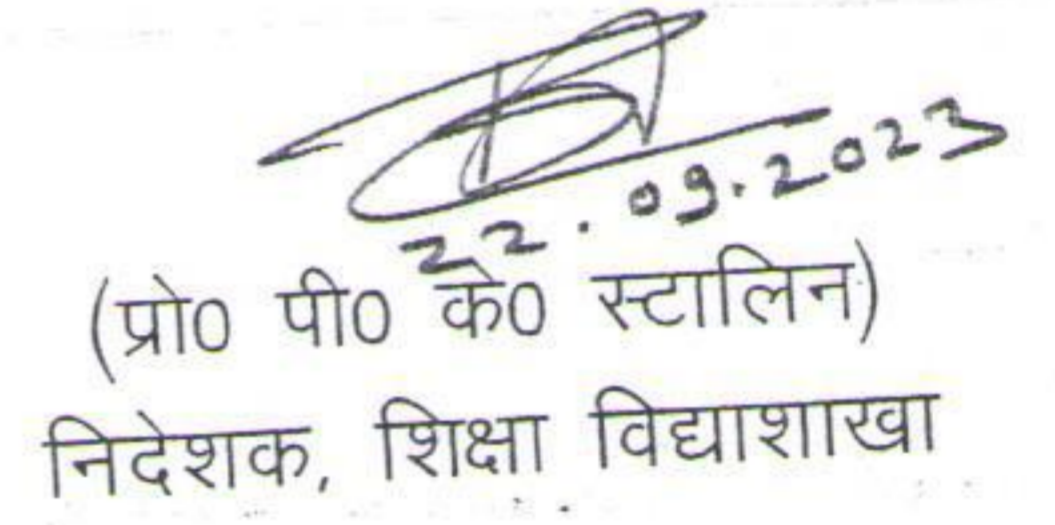 22.09.2023
(प्रो0 पी0 के0 स्टालिन)
निदेशक, शिक्षा विद्याशाखा